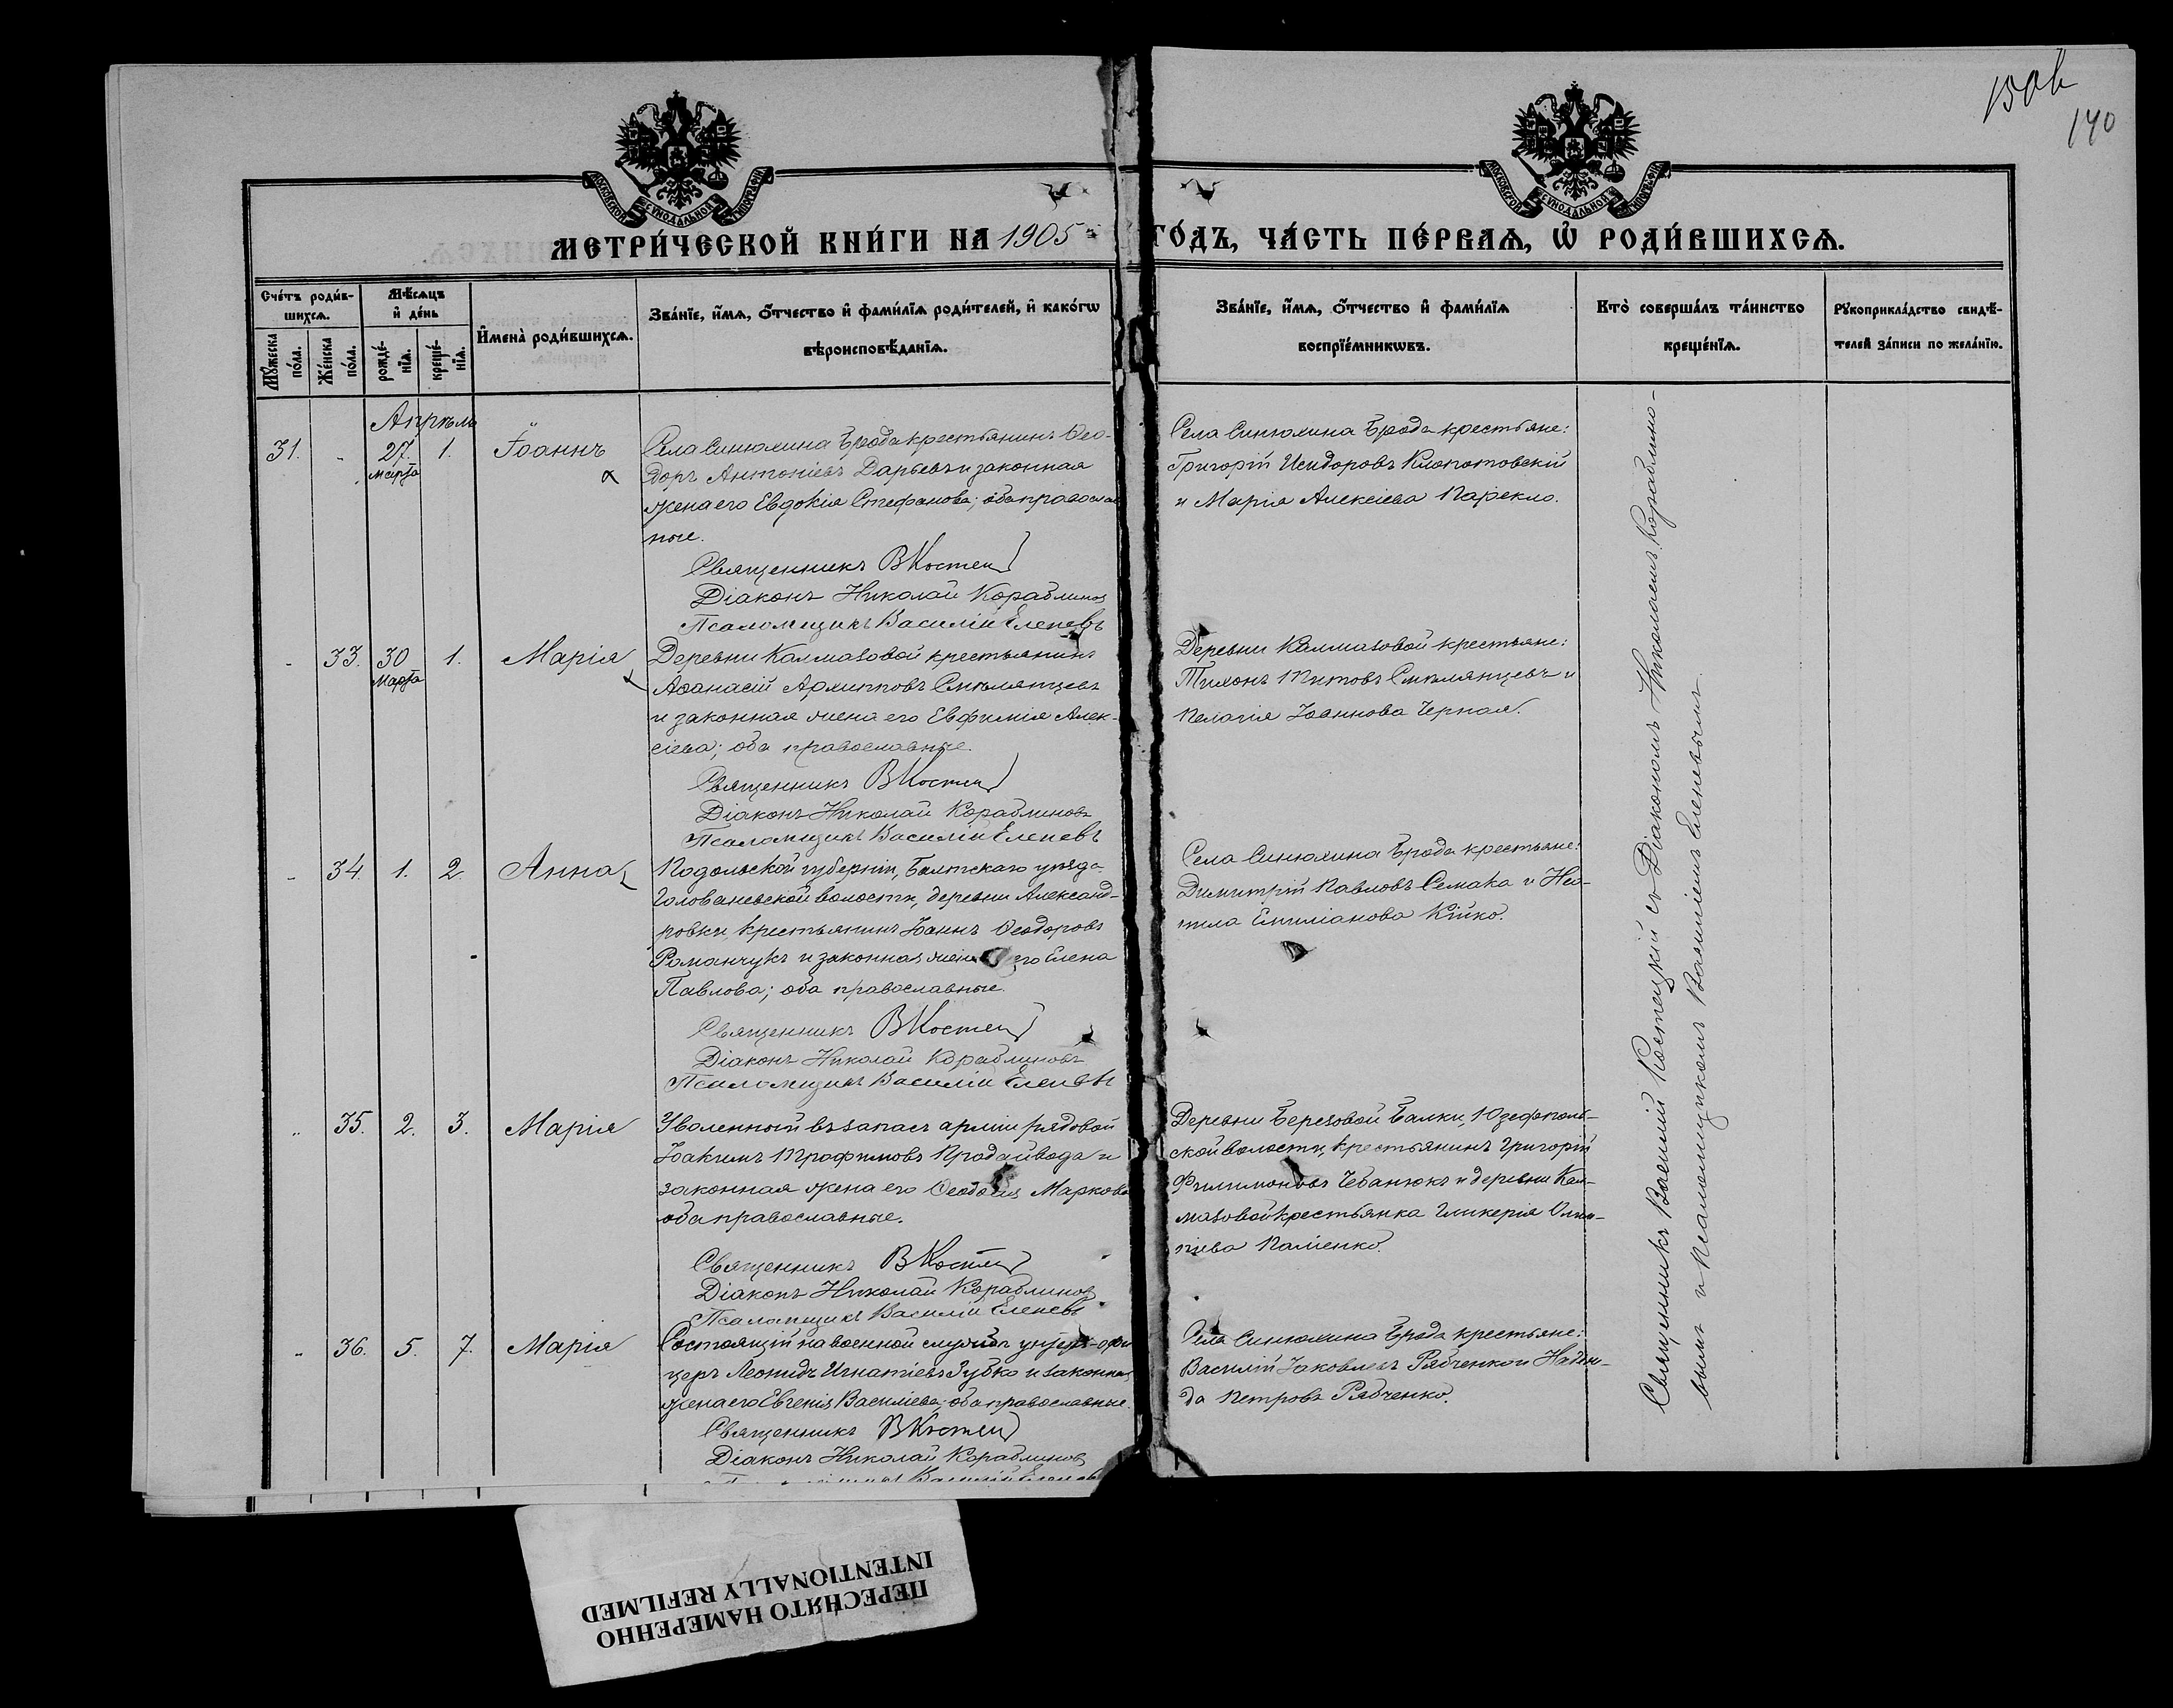 150 b
140
МОСКОВСКОЙ СѴНОДАЛЬНОЙ ТИПОГРАФІИ
МОСКОВСКОЙ СѴНОДАЛЬНОЙ ТИПОГРАФІИ
МЕТРИ́ЧЕСКОЙ КНИ́ГИ НА 1905 ГО́ДЪ, ЧА́СТЬ ПЕ́РВАѦ, Ѡ҆ РОДИ́ВШИХСѦ.
Сче́тъ роди́в-
шихсѧ.
Мꙋ́жеска по́ла.
Же́нска по́ла.
Мѣ́сѧцъ и҆ де́нь
рожде́-
нїѧ.
креще́-
нїѧ.
И҆мена̀ роди́вшихсѧ.
Зва́нїе, и҆́мѧ, ѻ҆́тчество и҆ фами́лїѧ роди́телей, и҆ како́гѡ
вѣроисповѣ́данїѧ.
Зва́нїе, и҆́мѧ, ѻ҆́тчество и҆ фами́лїѧ
воспрїе́мникѡвъ.
Кто̀ соверша́лъ та́инство
креще́нїѧ.
Рꙋкоприкла́дство свидѣ́-
телей за́писи по жела́нїю.
Апрѣль
31. 27. Марта 1. Іоаннъ
Села Синюхина Брода крестьянинъ Ѳео-
доръ Антоніевъ Дарьевъ и законная
жена его Евдокія Стефанова; оба православ
ные.
Священникъ ВКостец
Діаконъ Николай Кораблинов
Псаломщикъ Василій Еленевъ
Села Синюхина Брода крестьяне:
Григорій Исидоровъ Клопотовскій
и Марія Алексіева
33. 30 Марта 1. Марія
Деревни Калмазовой крестьянинъ
Аѳанасій Архипповъ Смилянцевъ
и законная жена его Евфимія Алек-
сіева; оба православные.
Священникъ ВКостец
Діаконъ Николай Кораблиновъ
Псаломщикъ Василій Еленевъ
Деревни Калмазовой крестьяне:
Тихонъ Титовъ Смилянцевъ и
Пелагія Іоаннова Черная.
34. 1. 2. Анна
Подольской губерніи, Балтскаго уѣзда
Голованевской волости, деревни Александ-
ровки, крестьянинъ Іоаннъ Ѳеодоровъ
Романчукъ и законная жена его Елена
Павлова; оба православные.
Священникъ ВКостец
Діаконъ Николай Кораблиновъ
Псаломщикъ Василій Еленевъ
Села Синюхина Брода крестьяне:
Димитрій Павловъ Семака и Нео-
нила Емиліанова Кійко.
35. 2. 3. Марія
Уволенный въ запасъ арміи рядовой
Іоакимъ Трофимовъ Продайвода и
законная жена его Ѳеодосія Маркова
оба православные.
Священникъ ВКостец
Діаконъ Николай Кораблинов
Псаломщикъ Василій Еленевъ
Деревни Березовой Балки, Юзефполь-
ской волости, крестьянинъ Григорій
Филимоновъ Чебанюкъ и деревни Кал-
мазовой крестьянка Гликерія Олим-
піева Паліенко.
36. 5. 7. Марія
Состоящій на военной службѣ унтеръ-офи
церъ Леонидъ Игнатіевъ Зубко и законная
жена его Евгенія Василіева; оба православные.
Священникъ ВКостец
Діаконъ Николай Кораблинов
Василій Еленевъ
Села Синюхина Брода крестьяне:
Василій Іаковлевъ Рябченко и Надеж-
да Петрова Рябченко.
Священникъ Василій Костецкій съ Діакономъ Николаемъ Кораблино-
вымъ и Псаломщикомъ Василіемъ Еленевымъ.
ПЕРЕСНЯТО НАМЕРЕННО
INTENTIONALLY REFILMED